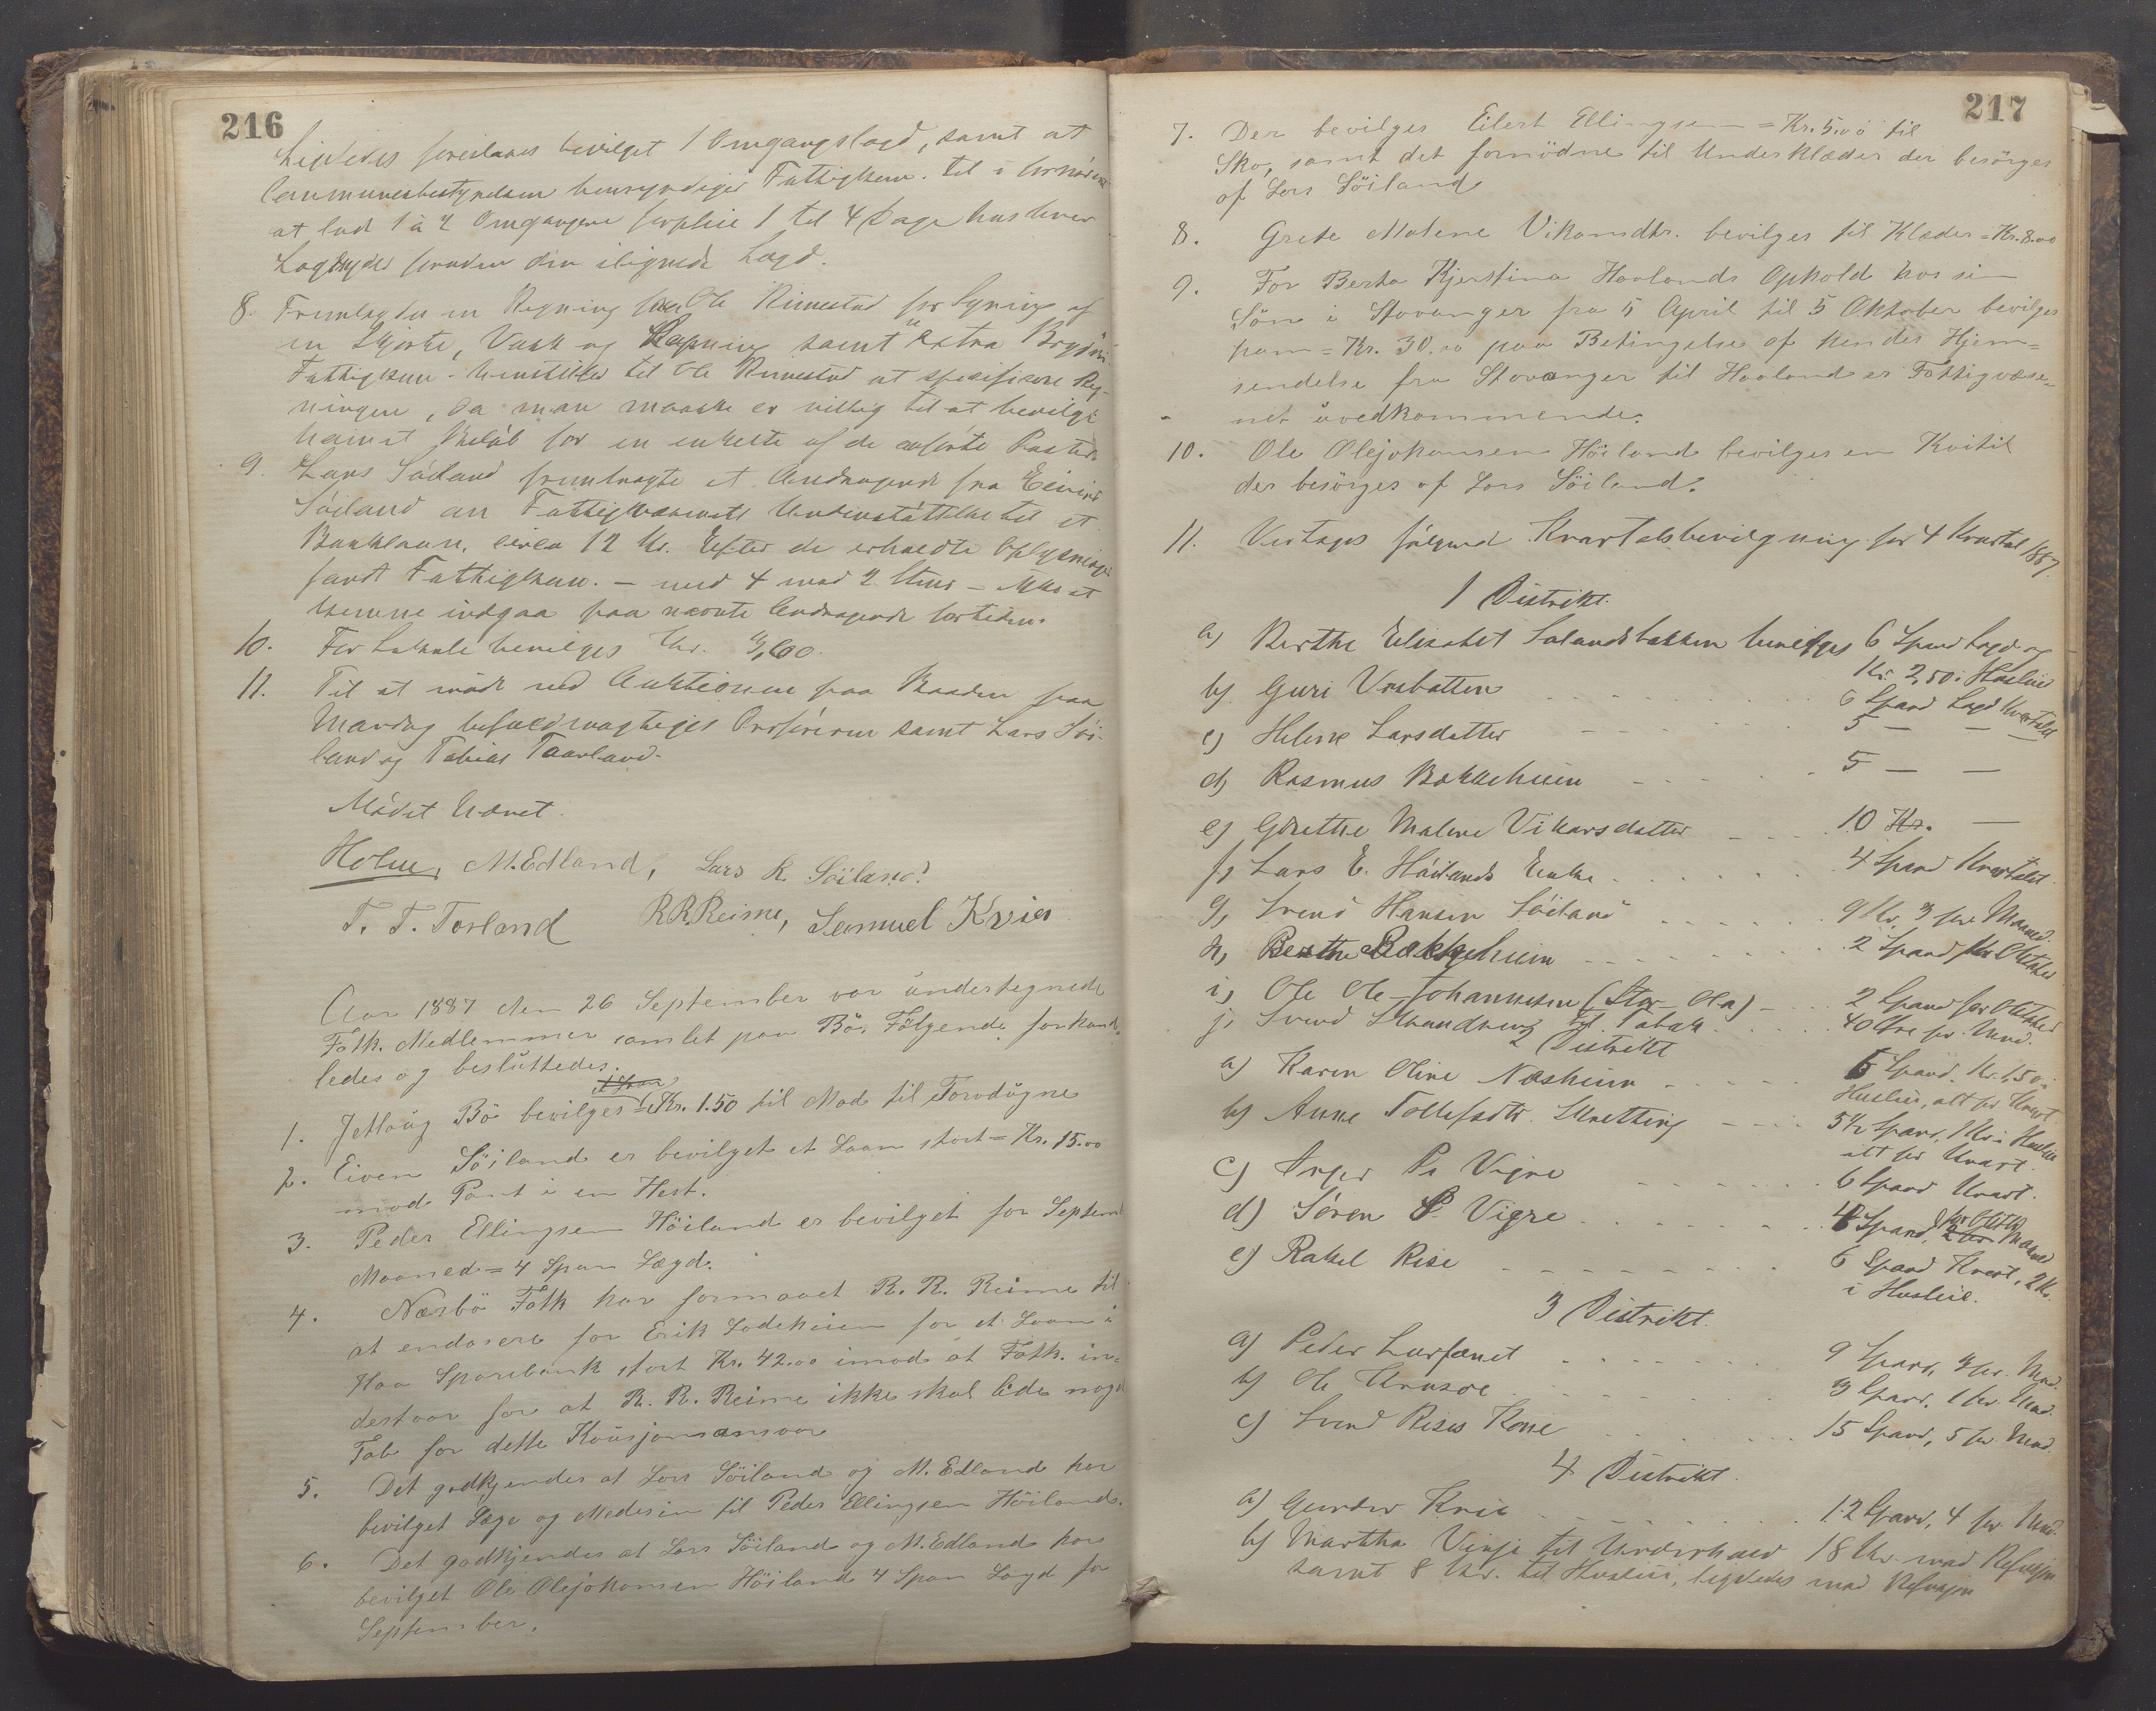 216
Ligeledes foreslaaes bevilget 1 Omgangslægd, samt at
Communebestyrelsen bemyndiger Fattigkom. til i
at lade 1 à 2 Omgangene forpleie 1 til 4 Dage hos hver
Lægdsyder foruden den ilignede Lægd.
8. Fremlagdes en Regning fra Ole Rimestad for Syning af
en Skjorte, Vask og Lapning samt Extra
Fattigkom. henstilles til Ole Rimestad at spesifisere Reg-
ningen, da man maaske er villig til at bevilge
Beløb for en enkelte af de anførte Poster.
9. Lars Söiland fremlagte et Andragende fra Eivind
Söiland om Fattigvæsenets Understøttelse til et
Banklaan, circa 12 Kr. Efter de erholdte Oplysninger
fandt Fattigkom. – med 4 mod 2 Stem – ikke at
kunne indgaa paa nævnte Andragende fortiden.
10. For Lokale bevilges Kr. 1,60.
11. Til at møde ved Auktionen paa Baaden paa
Mandag befuldmægtiges Ordføreren samt Lars Söi-
land og Tobias Taarland.
Mödet hævet.
Holm, M. Edland, Lars R. Söiland
T. T. Torland R R Reime, Samuel Kvia
Aar 1887 den 26 September var undertegnede
Fatk. Medlemmer samlet paa Bö. Fölgende forhand-
ledes og besluttedes.
1. Jetlaug Bö bevilges Kr. 1.50 til Mad til Torvdögne
2. Eiven Söiland er bevilget et Laan stort = Kr. 15.00
mod Pant i en Hest.
3. Peder Ellingsen Höiland er bevilget for Septem
Maaned = 4 Span Lægd.
4. Nærbö Fatk har formaaet R. R. Reime til
at endosere for Erik Lodeheien for et Laan i
Haa Sparebank stort Kr. 42.00 imod at Fatk. in-
destaar for at R. R. Reime ikke skal lide noget
Tab for dette Kausjonsansvar
5. Det godkjendes at Lars Söiland og M. Edland har
bevilget Læge og Medesin til Peder Ellingsen Höiland.
6. Det godkjendes at Lars Söiland og M. Edland har
bevilget Ole Olejohansen Höiland 4 Span Lægd for
September.
217
7. Der bevilges Eilert Ellingsen = Kr. 5.00 til
Sko, samt det fornödne til Underklæder der besörges
af Lars Söiland
8. Grete Malene Vikansdtr. bevilges til Klæder = Kr. 8.00
9. For Berta Kjerstina Haalands Ophold hos sin
Sön i Stavanger fra 5 April til 5 Oktober bevilges
ham = Kr. 30.00 paa Betingelse af hendes Hjem-
sendelse fra Stavanger til Haaland er Fattigvæse-
net uvedkommende.
10. Ole Olejohansen Höiland bevilges en Kvitil
der besörges af Lars Söiland.
11. Vertages fölgende Kvartalsbevilgning for 4 Kvartal 1887.
1 Distrikt.
a) Berthe Elisabet Salandsbakken bevilges 6 Spand Lægd og
Kr. 2,50 i Husleie
b) Guri Vrabatten 6 Spand Lægd Kvartalet
c) Helene Larsdatter 5 — —
d) Rasmus Bakkeheien 5 — —
e) Grethe Malene Vikansdatter 10 Kr. —
f) Lars E. Höilands Enke 4 Spand Kvartalet
g) Svend Hansen Söiland 9 Kr, 3 pr. Maaned.
h) Berthe Bakkeheien 2 Spand for Oktober
i) Ole Ole-Johannesen (Stor-Ola) 2 Spand for Oktober
j) Svend Skrandberg til Tobak 40 Øre pr. Mnd.
2 Distrikt
a) Karen Oline Næsheim 5 Spand. Kr. 1,50 i
Husleie, alt pr. Kvart.
b) Anne Tollefsdtr. Skretting 5½ Spand, 1 Kr. i Husleie
alt pr Kvart.
c) Inger Pr Vigre 6 Spand Kvart.
d) Sören P. Vigre 4 Spand, for Oktbr
e) Rakel Rise 6 Spand Kvart, 2 Kr.
i Husleie.
3 Distrikt.
a) Peder Lurfanet 9 Spand, 3 pr. Mnd.
b) Ole 3 Spand, 1 pr. Mnd.
c) Svend Rises Kone 15 Spand, 5 pr. Mnd.
4 Distrikt.
a) Gunder Kvia 12 Spand, 4 pr. Mnd.
b) Martha Vinje til Underhold 18 Kr. mod Refusjon
samt 8 Kr. til Husleie, ligeledes mod Refusjon